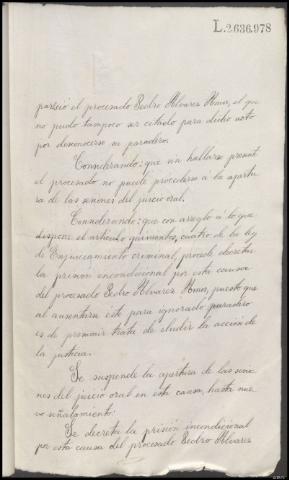 L.2.636.978
pareció el procesado Pedro Alvares Amor, el que
no pudo tampoco ser citado para dicho acto
por desconocerse su paradero.
Considerando: que sin hallarse presente
el procesado no puede procederse á la apertu
ra de las sesiones del juicio oral.
Considerando: que con arreglo á lo que
dispone el artículo quinientos, cuatro de la ley
de Enjuiciamiento criminal, procede decretar
la prisión incondicional por esta causa
del procesado Pedro Alvarez Amor, puesto que
al ausentarse este para ignorado paradero
es de presumir trata de eludir la acción de
la justicia.
Se suspende la apertura de las sesio
nes del juicio oral en esta causa, hasta nue
vo señalamiento:
Se decreta la prisión incondicional
por esta causa del procesado Pedro Alvares